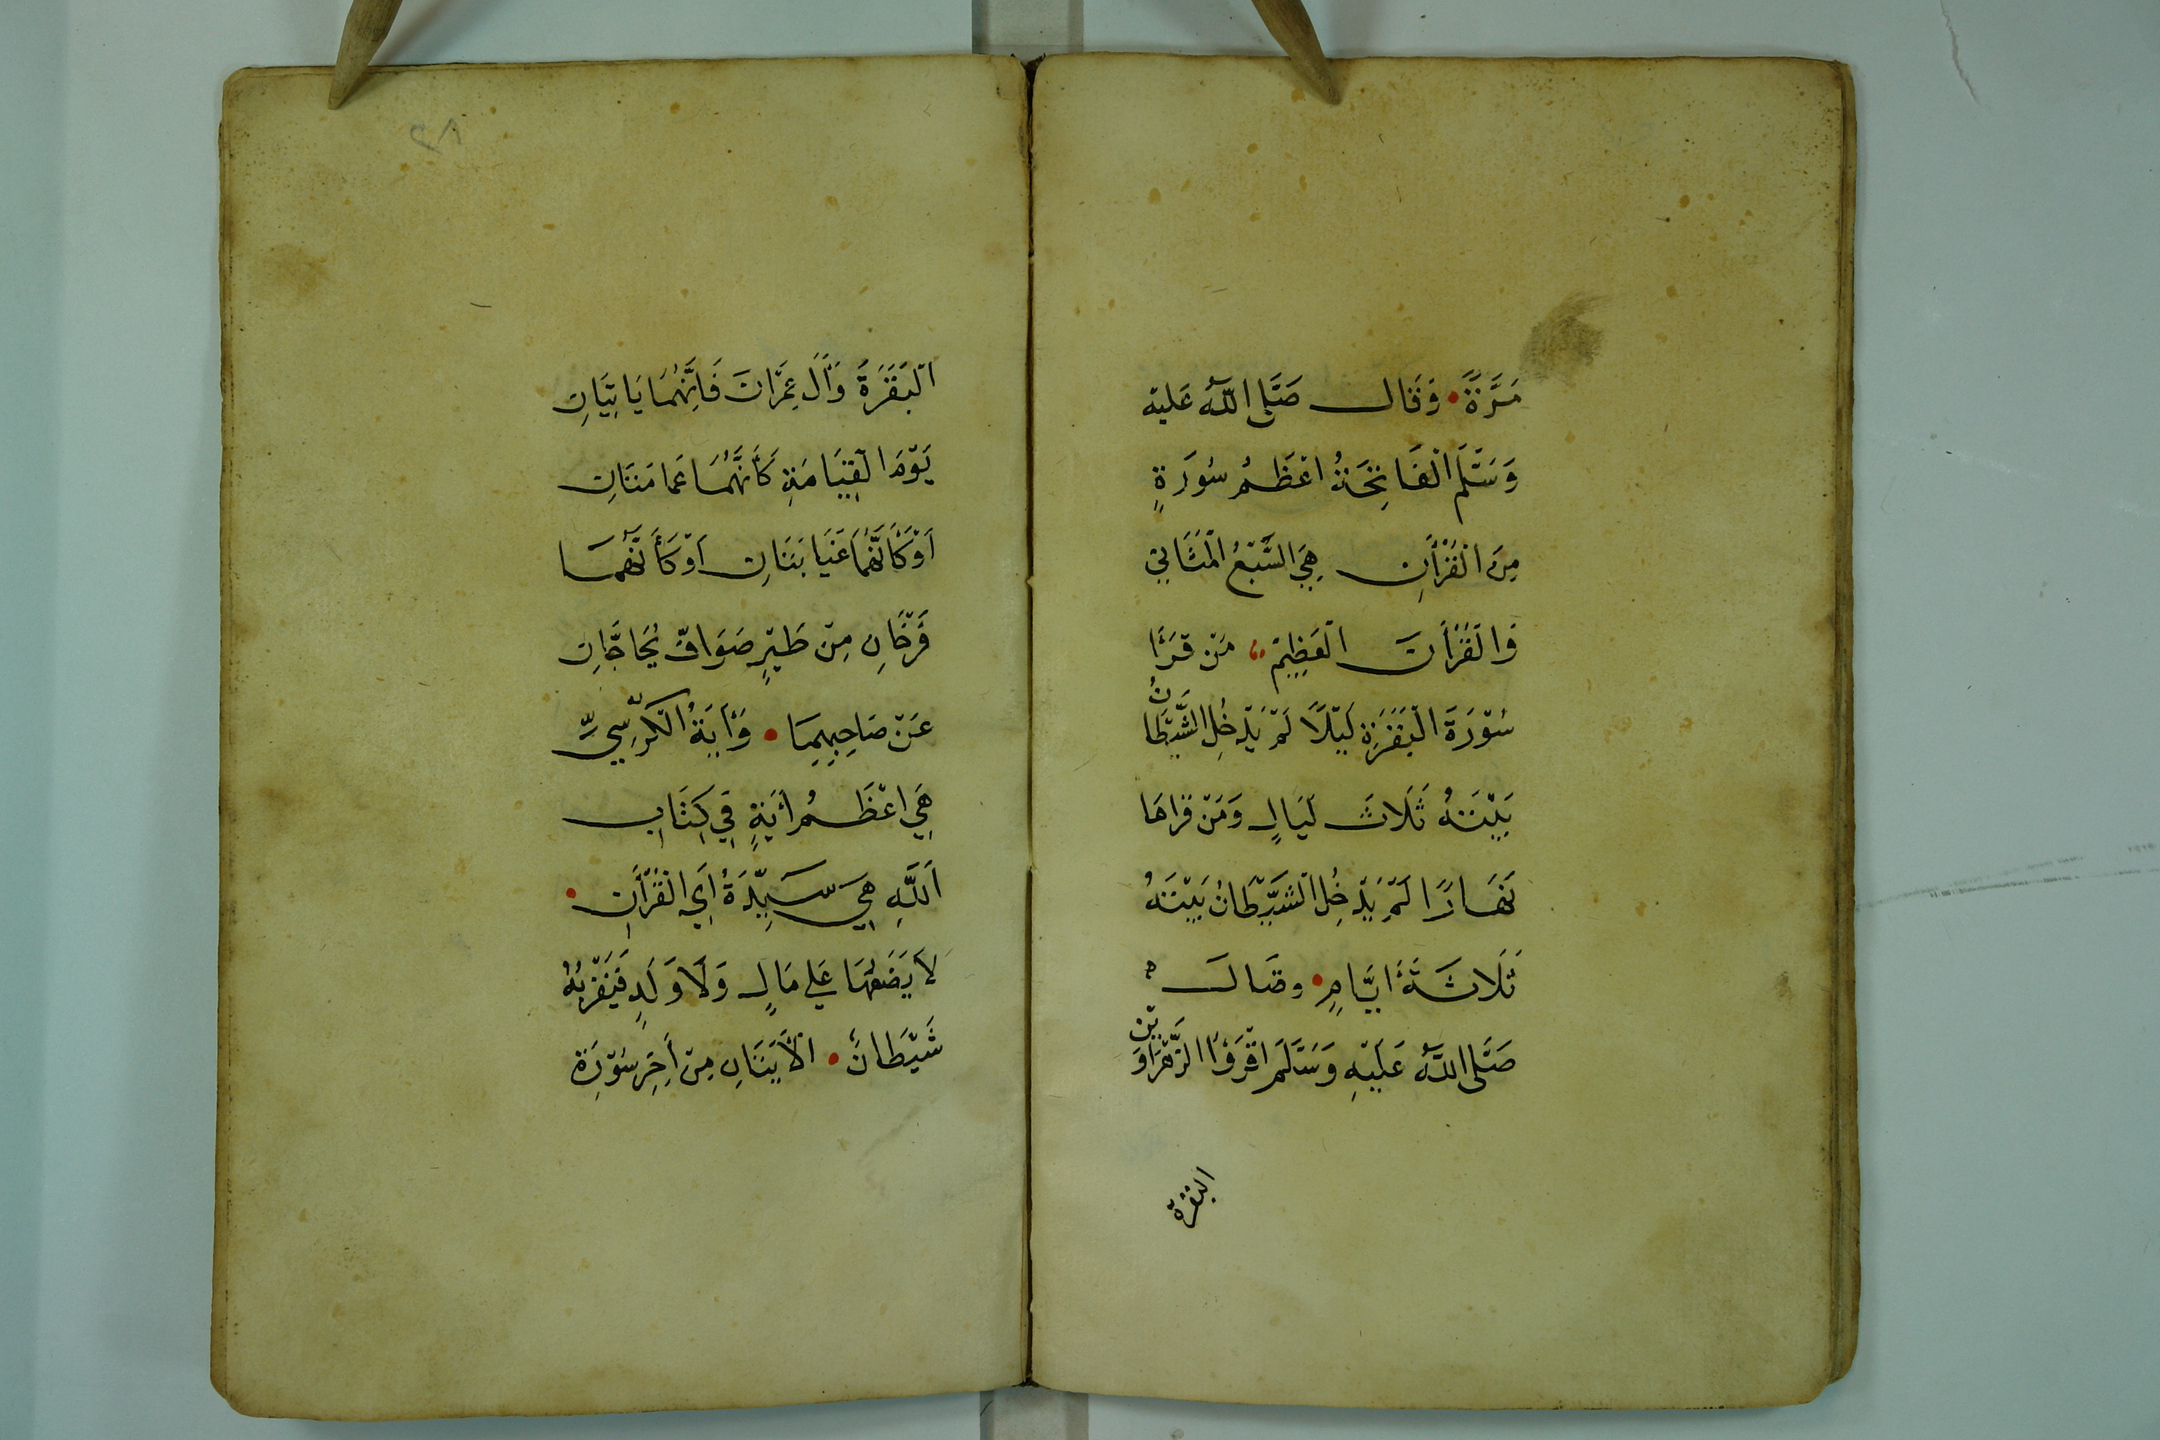 مَرَّةً • وَقَالَ صَلَّى اللّٰهُ عَلَيْهِ
وَسَلَّمَ الْفَاتِحَةُ اَعْظَمُ سُورَةٍ
مِنَ الْقُرْأٰنِ هِيَ السَّبْعُ الْمَثَانِي
وَالْقُرْأٰنَ الْعَظِيْمَ مَنْ قَرَأَ
سُوْرَةَ الْبَقَرَةِ لَيْلًا لَمْ يَدْخُلِ الشَّيْطَانُ
بَيْتَهُ ثَلَاثَ لَيَالٍ وَمَنْ قَرَاهَا
نَهَارًا لَمْ يَدْخُلِ الشَّيْطَانُ بَيْتَهُ
ثَلَاثَةَ اَيَّامٍ • وقَالَ
صَلَّى اللّٰهُ عَلَيْهِ وَسَلَّمَ اقْرَؤُا الزَّهْرَاوَيْنِ
البقرة
الْبَقَرَةَ وَاٰلَ عِمْرَانَ فَاِنَّهُمَا يَاتِيَانِ
يَوْمَ الْقِيَامَةِ كَاَنَّهُمَا غَمَامَتَانِ
اَوْ كَاَنَّهُمَا غَيَابَتَانِ اَوْ كَاَنَّهُمَا
فِرْقَانِ مِنْ طَيْرٍ صَوَافَّ يُحَاجَّانِ
عَنْ صَاحِبِهِمَا • وَاٰيَةُ الْكُرْسِيِّ
هِيَ اَعْظَمُ اٰيَةٍ فِي كِتَابِ
اللّٰهِ هِيَ سَيِّدَةُ اٰيِ الْقُرْأٰنِ •
لَا يَضَعُهَا عَلٰى مَالٍ وَلَا وَلَدٍ فَيَقْرَبُهُ
شَيْطَانٌ • الْاٰيَتَانِ مِنْ اٰخِرِ سُوْرَةِ